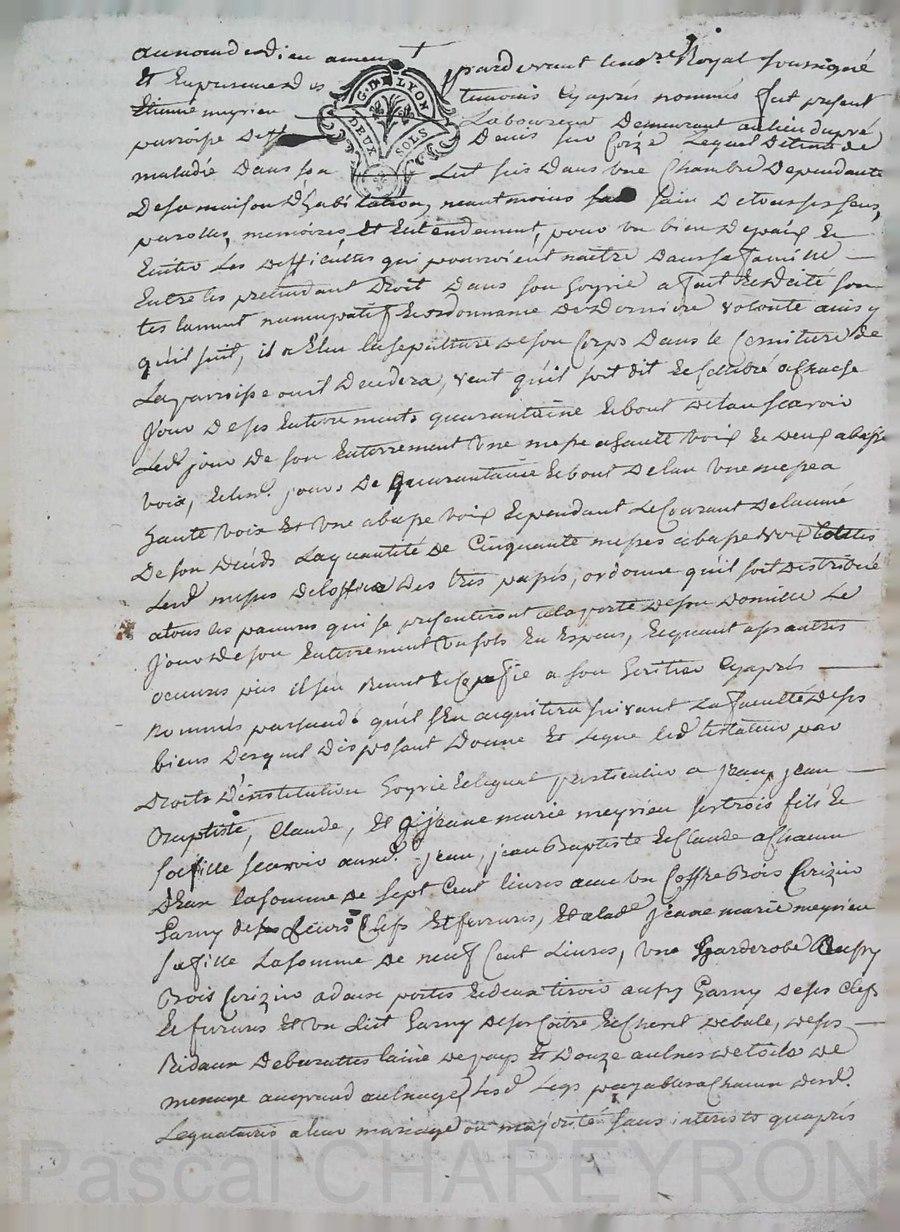 au nom de dieu amen + pardevant le no.re Royal soussigné
Et En presence des temoins cy apres nommés fut present
Etienne meyrieu Laboureur Demeurant au lieu du pré
parroisse De St Denis sur Coize Lequel Detenu de
G. DE LYON
DEUX SOLS
maladie Dans son Lit sis Dans une Chambre Dependante
De sa maison D'habitation, neantmoins sain De tous ses sens,
parolles, memoires, Et Entendement, pour un bien De paix Et
Eviter Les difficultes qui pourroient naitre Dans sa famille —
Entre les pretendant Droit Dans son hoyrie a fait Et Dicté son
testament nuncupatif Et ordonnance De Derniere volonté ainsy
qu'il suit, il a Elu la sepulture De son Corps Dans le Cemitiere De
La parroisse ou il Decedera, veut qu'il soit dit Et Celebré a Chaque
jour De ses Enterrement, quarantaine Et bout De l'an scavoir
Led. jour De son Enterrement une messe a haute voix Et Deux a basse
voix, Et lesd. jours De quarantaine Et bout De l'an une messe a
haute voix Et une a basse voix Et pendant Le Courant De l'année
De son Deceds La quantité De Cinquante messes a basse voix toutes
Lesd. messes De l'office Des tres passés, ordonne qu'il soit Distribué
a tous les pauvres qui se presenteront a la porte De son Domicille Le
jour De son Enterrement un sols En Especes, Et quant a ses autres
oeuvres pies il s'en Remet Et Confie a son heritier cy apres —
Nommé persuadé qu'il s'en acquittera suivant La faculté De ses
biens Desquel Disposant Donne Et Legue led. testateur par
Droits D'institution hoyrie Et legat particulier a jean, jean —
Baptiste, Claude, Et jeane marie meyrieu ses trois fils Et
sa fille scavoir auxd. jean, jean Baptiste Et Claude a Chacun
D'Eux la somme De sept Cent livres avec un Coffre Bois Cerizier
Garny De Leurs Clefs Et ferrures, Et a lad. jeane marie meyrieu
sa fille La somme De neuf Cent Livres, une Garderobe Aussy
Bois Cerizier a deux portes Et deux tiroir aussy Garny De ses Clefs
Et ferrures Et un Lit Garny De sa Coitre Et Chevet De bale, De ses —
Rideaux De burattes laine De pays Et Douze aulnes De toile De
menage au grand aulnage, Lesd. Legs payables a Chacun Desd.
Legataires a leur mariage ou majorité sans interests qu'apres
Pascal CHAREYRON